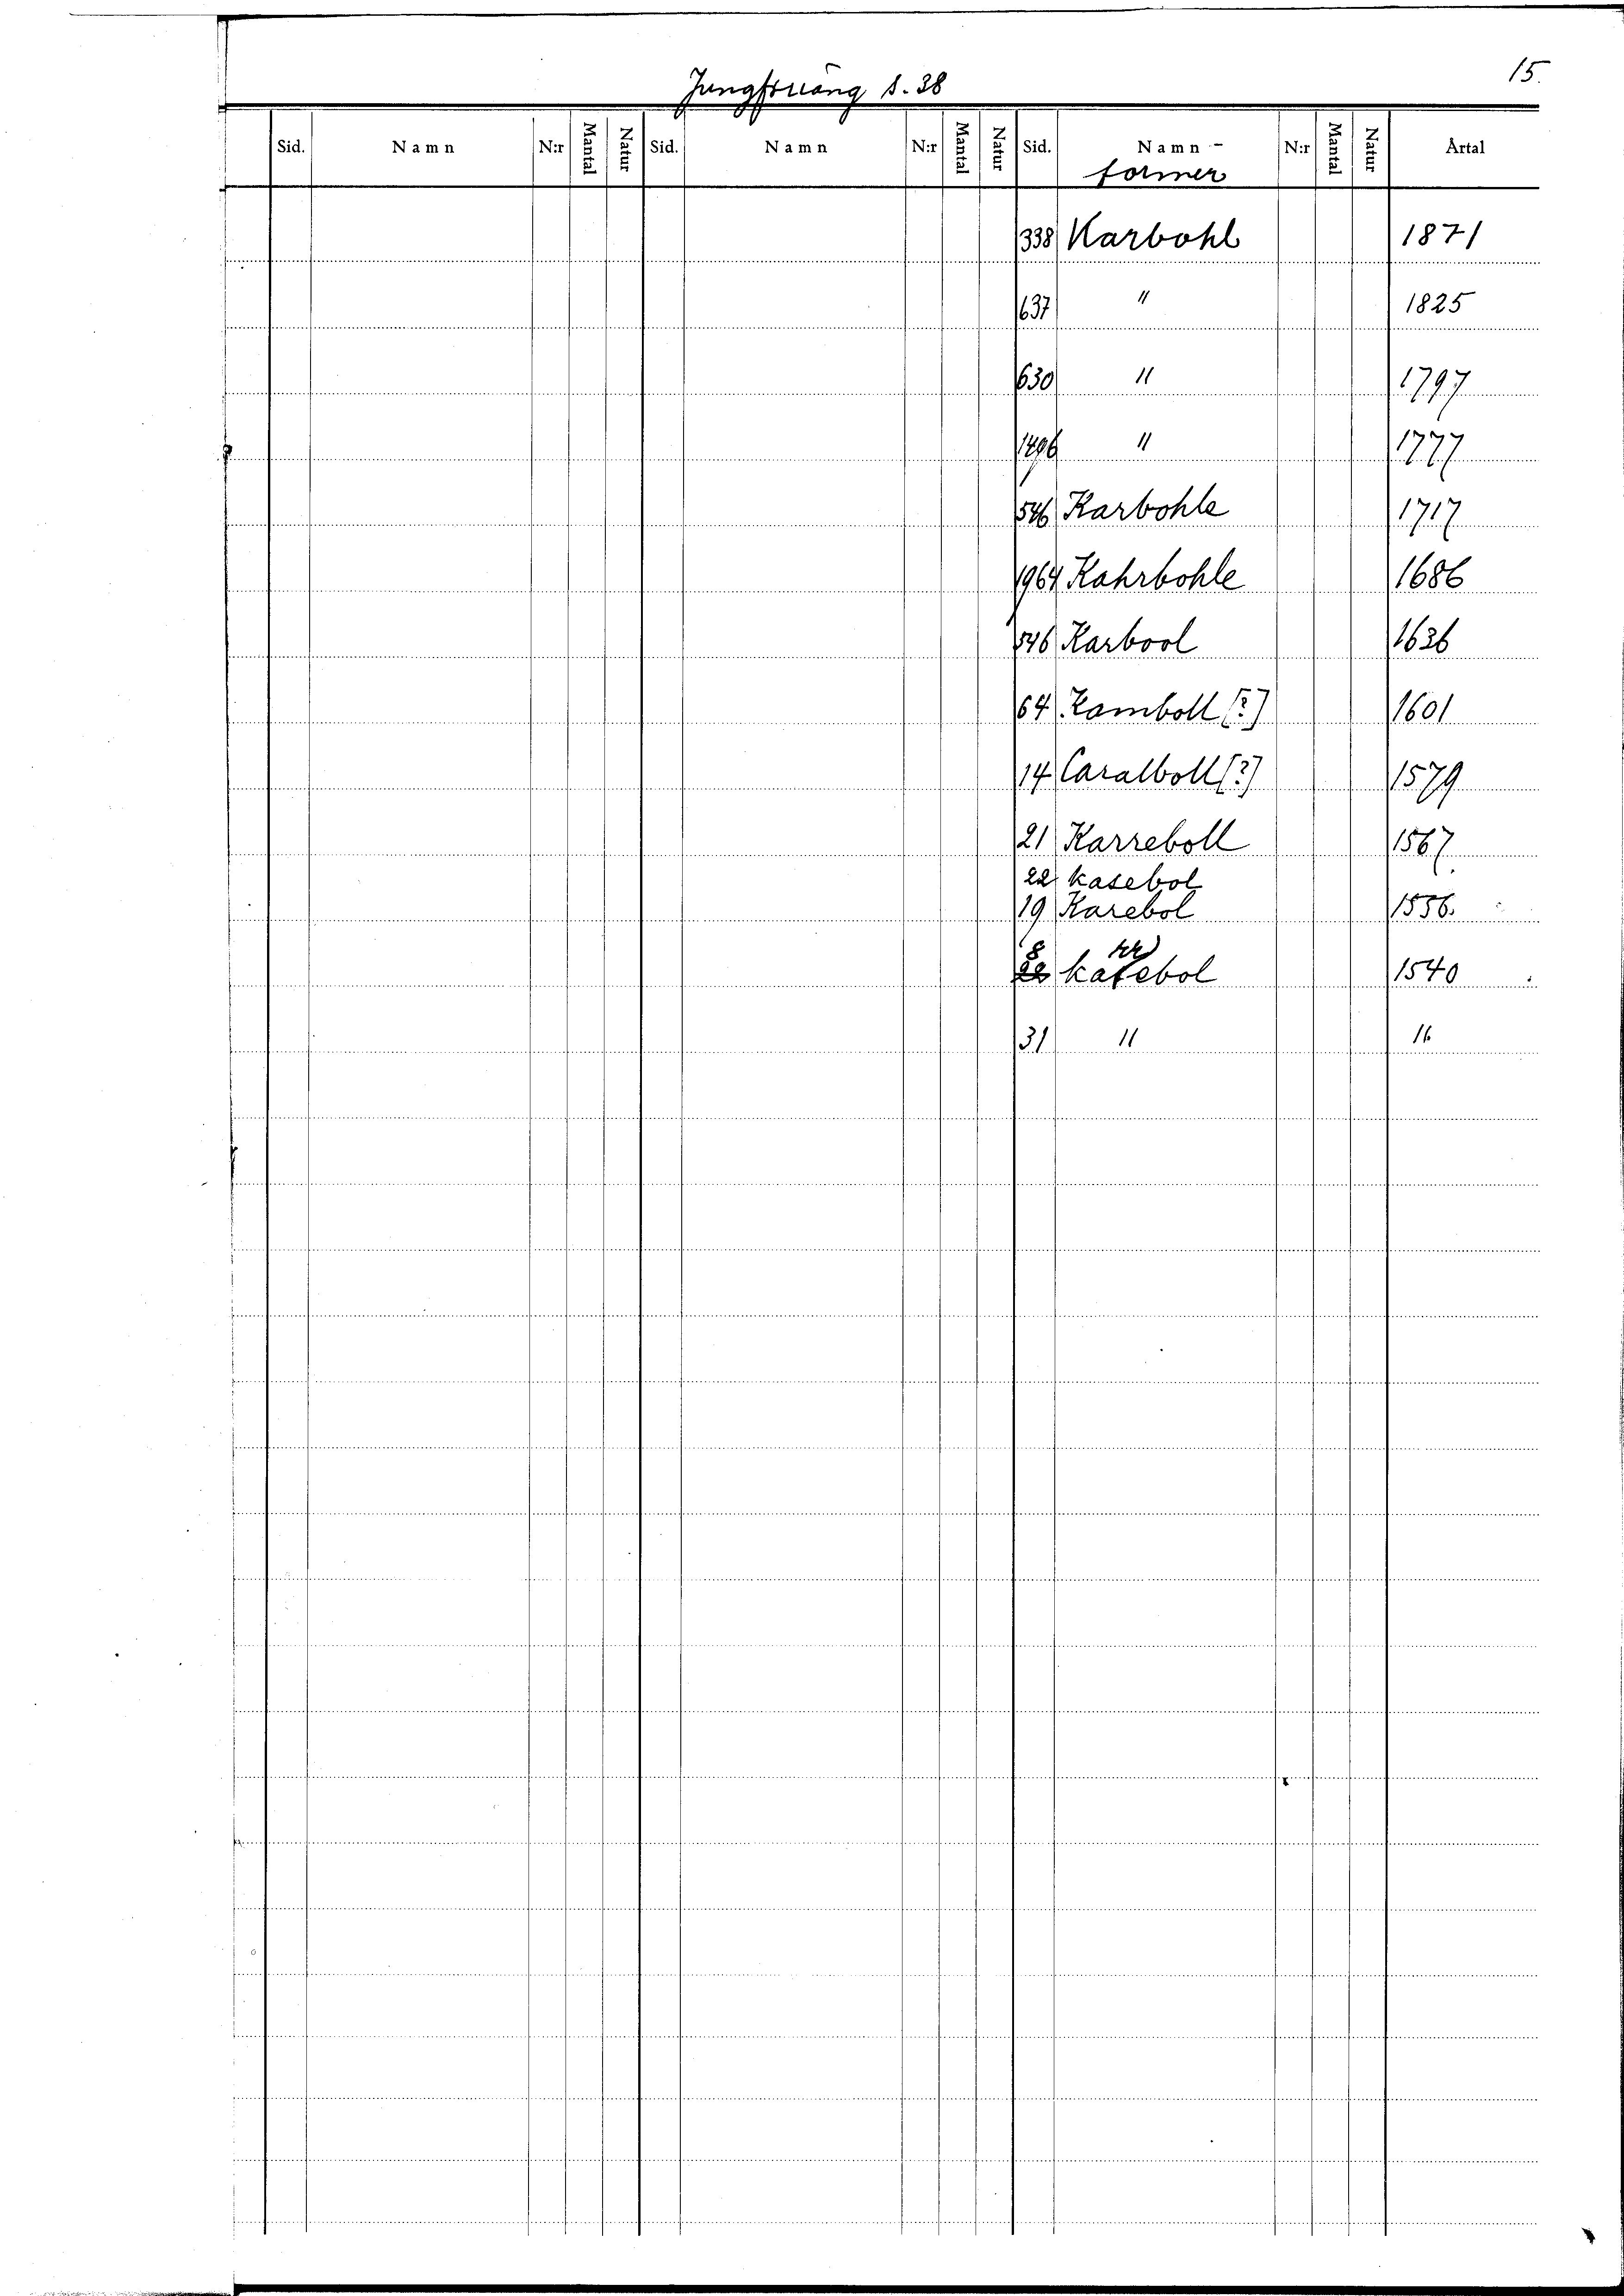 15.
Jungfruäng s. 38
Sid. Namn N:r Mantal Natur Sid. Namn N:r Mantal Natur Sid. Namn- N:r Mantal Natur Årtal
former
338 Karbohl 1871
637 " 1825
630 " 1797
1496 " 1777
546 Karbohle 1717
1964 Kahrbohle 1686
546 Karbool 1636
64 Kamboll [?] 1601
14 Caralboll [?] 1579
21 Karreboll 1567.
22 kasebol
19 Karebol 1556.
8 rr
22 kasebol 1540
31 " "